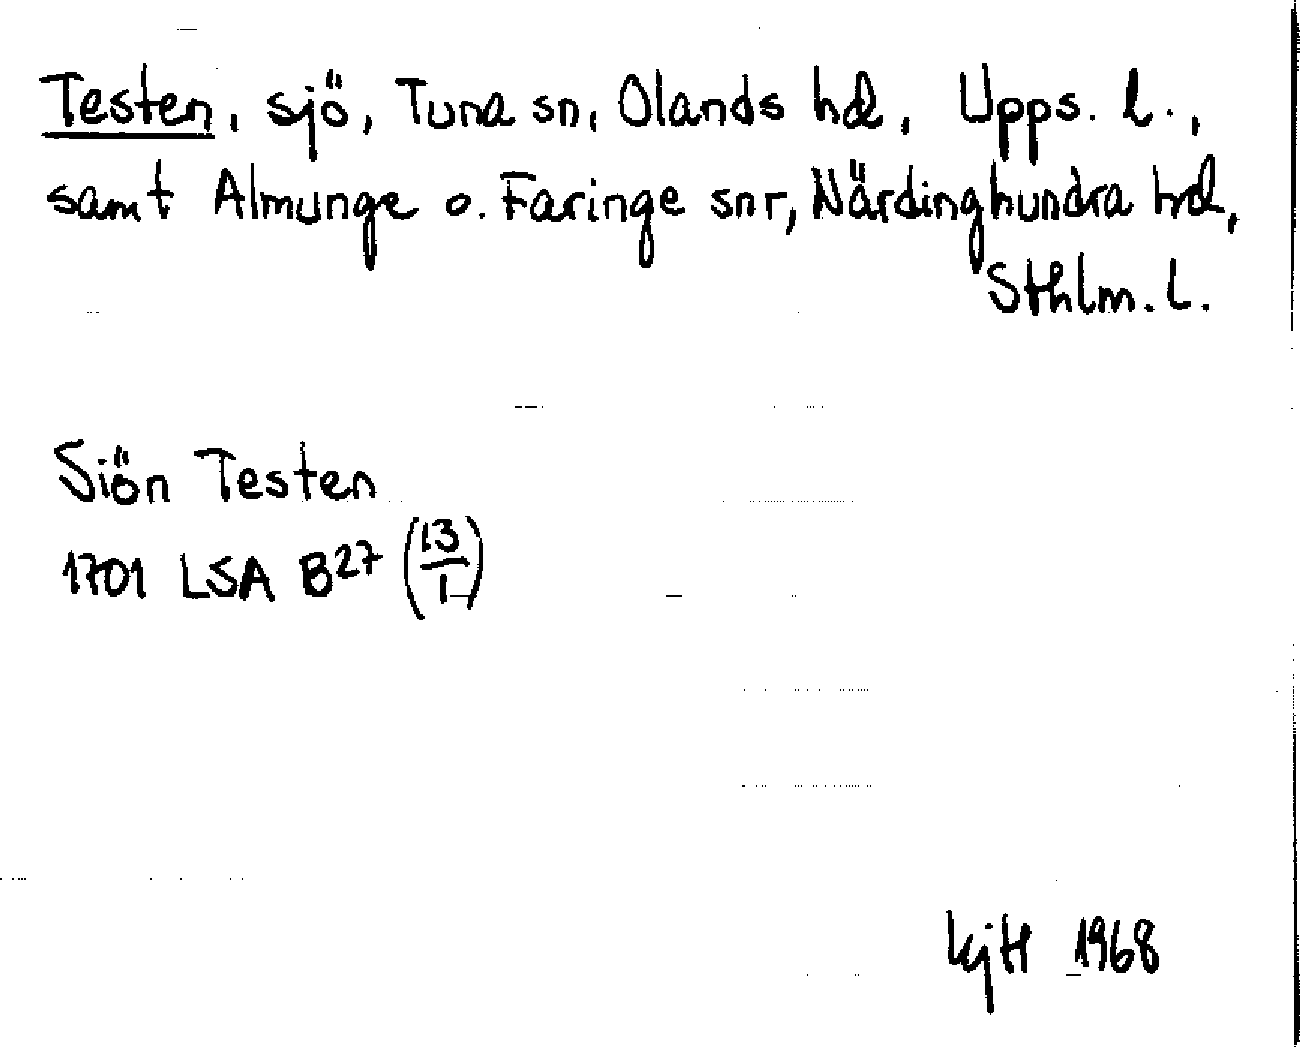 Testen, sjö, Tuna sn, Olands hd, Upps. l.,
samt Almunge o. Faringe snr, Närdinghundra hd,
Sthlm. L.
Siön Testen
1701 LSA B27 (13/1)
KjH 1968